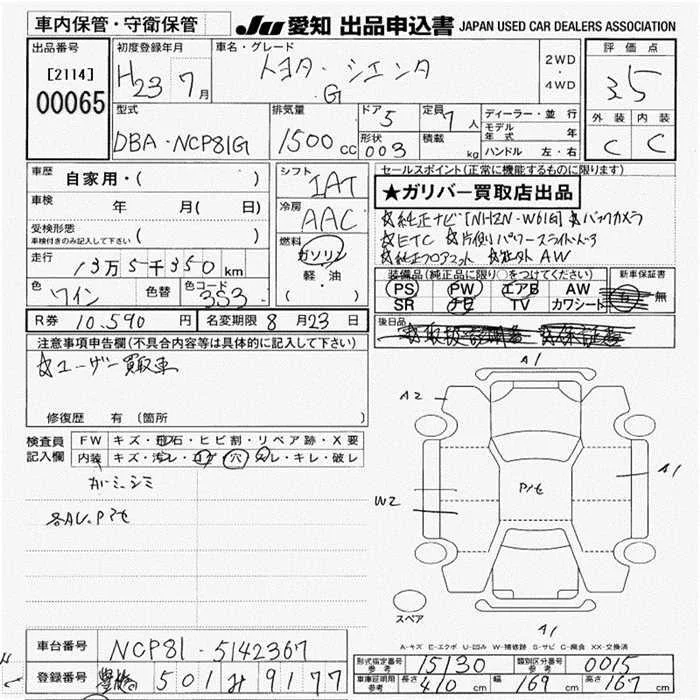 車内保管・守衛保管 JU 愛知 出品申込書 JAPAN USED CAR DEALERS ASSOCIATION
出品番号 [2114] 00065
初度登録年月 H23 7月
車名・グレード トヨタ・シエンタ G
2WD・4WD
評価点 3.5
外装 内装
C C
型式 DBA-NCP81G
排気量 1500cc
ドア 5
形状 003
定員 7人
積載 kg
ディーラー・並行
モデル年式 年
ハンドル 左・右
車歴 自家用・( )
車検 年 月( 日)
受検形態 車検付きのみ記入して下さい ( )
走行 13万5千350km
色 ワイン 色替 色コード 3S3
シフト IAT
冷房 AAC
燃料 ガソリン・軽・油 ( )
セールスポイント(正常に機能するものに限ります)
★ガリバー買取店出品
☆純正ナビ[NHZN-W61G] ☆バックカメラ
☆ETC ☆片側パワースライドドア
☆純正フロアマット ☆社外AW
装備品(純正品に限り○をつけてください)
PS PW エアB AW
SR ナビ TV カワシート
新車保証書 有・無
後日品
R券 10,590円 名変期限 8月23日
注意事項申告欄(不具合内容等は具体的に記入して下さい)
☆ユーザー買取車
修復歴 有(箇所
検査員記入欄
FW キズ・飛石・ヒビ割・リペア跡・X要
内装 キズ・汚レ・コゲ・穴・スレ・キレ・破レ
カーミ、シミ
各AU.Pアセ
A1
A2
A1
W2
Pアセ
A1
スペア
A-キズ E-エクボ U-凹み W-補修跡 S-サビ C-腐食 XX-交換済
車台番号 NCP81-5142367
登録番号 豊橋 501 み 9177
形式指定番号 参考 15130 類別区分番号 参考 0015
車庫証明用 参考 長さ 410cm 幅 169cm 高さ 167cm